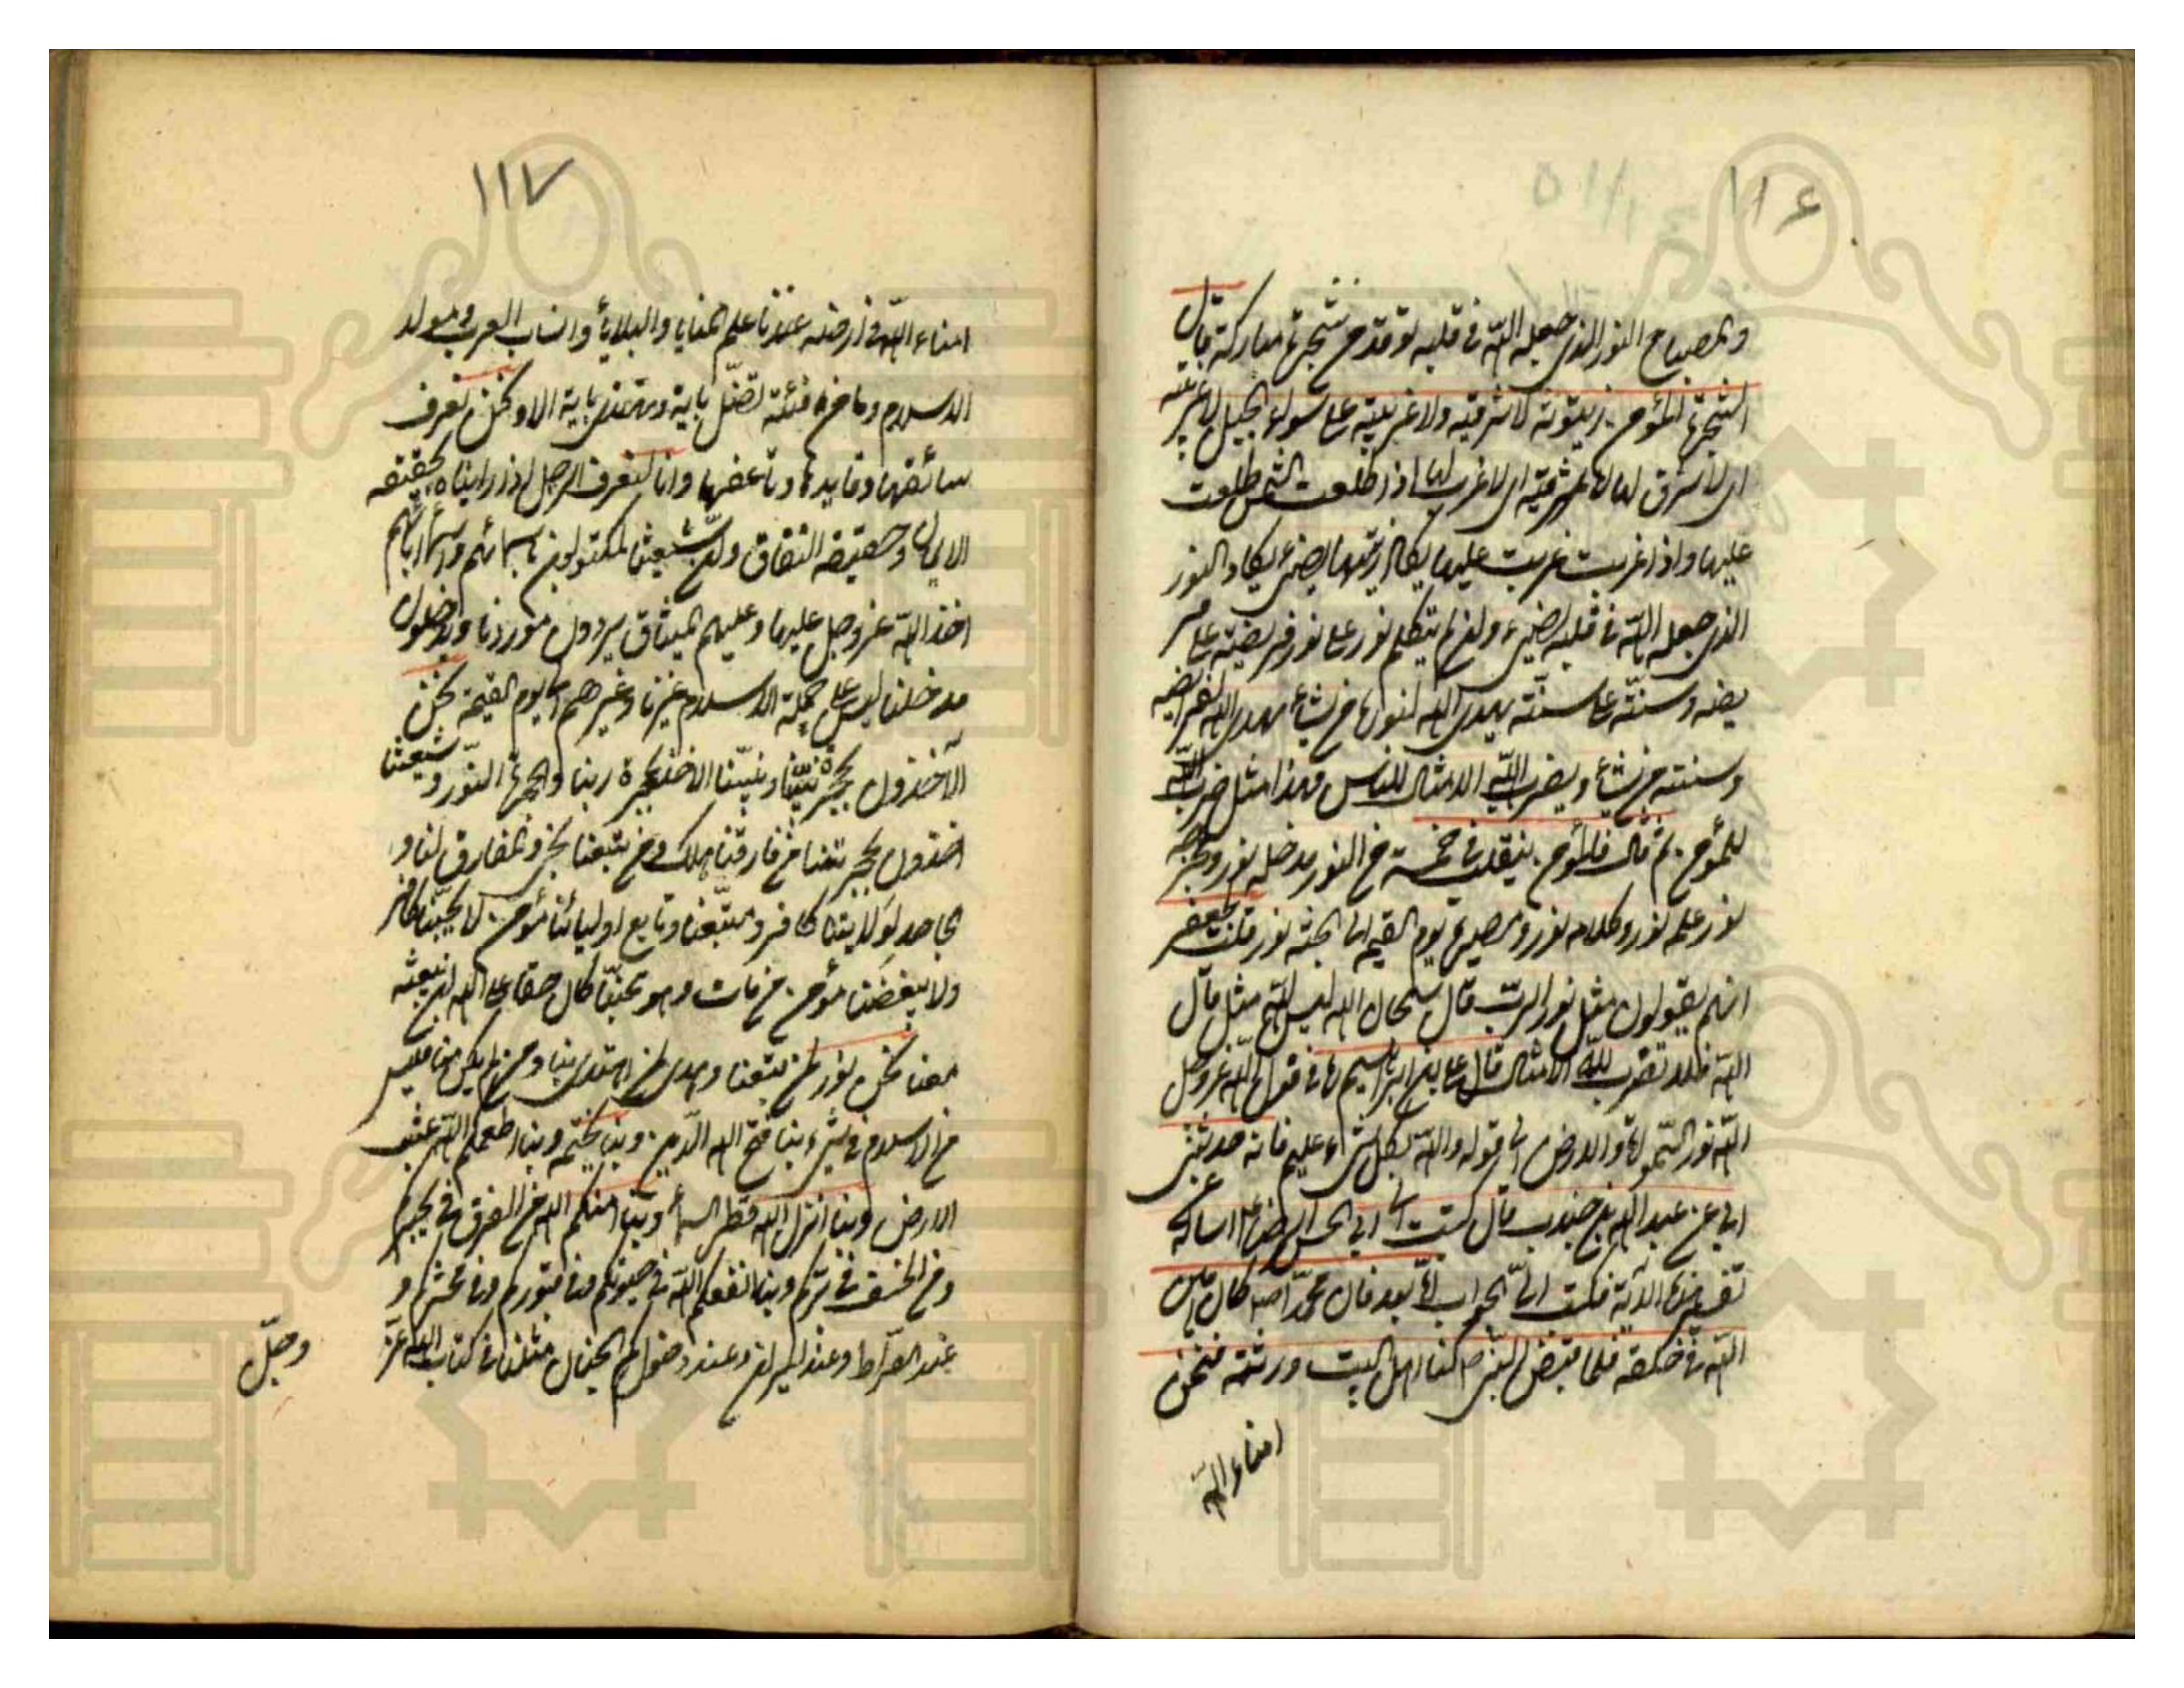 ١١٦
والمصباح النور الذي جعله الله في قلبه توقد من شجرة مباركة قال
الشجرة المؤمن زيتونة لا شرقية ولا غربية على سواء الجبل لا غربية
اي لا شرق لها لا شرقية اي لا غرب لها اذا طلعت الشمس طلعت
عليها واذا غربت غربت عليها يكاد زيتها يضيء يكاد النور
الذي جعله الله في قلبه يضيء ولو لم يتكلم نور على نور فريضة على فر
يضة وسنة على سنة يهدي الله لنوره من يشاء يهدي الله لفرايضه
وسننه من يشاء ويضرب الله الامثال للناس فهذا مثل ضربه الله
للمؤمن ثم قال فالمؤمن ينقلب في خمسة من النور مدخله نور ومخرجه
نور علمه نور وكلامه نور ومصيره يوم القيمة الى الجنة نور قلت لجعفر
انهم يقولون مثل نور الرب قال سبحان الله ليس لله مثل قال
الله فلا تضرب لله الامثال قال علي بن ابراهيم ره في قول الله عز وجل
الله نور السموات والارض الى قوله والله بكل شيء عليم فانه حدثني
ابي عن عبد الله بن جندب قال كتبت الى ابي الحسن الرضا ع اساله عن
تفسير هذه الاية فكتب الي الجواب اما بعد فان محمدا ص كان امين
الله في خلقه فلما قبض النبي ص كنا اهل البيت ورثته فنحن
امناء الله
١١٧
امناء الله في ارضه عندنا علم المنايا والبلايا وانساب العرب ومولد
الاسلام وما من فئة تضل باية وتهتدي باية الا ونحن نعرف
سائقها وقايدها وناعقها وانا لنعرف الرجل اذا رايناه بحقيقة
الايمان وحقيقة النفاق وان شيعتنا لمكتوبون باسمائهم واسماء ابائهم
اخذ الله عز وجل علينا وعليهم الميثاق يردون موردنا ويدخلون
مدخلنا ليس على جملة الاسلام غيرنا وغيرهم الى يوم القيمة نحن
الآخذون بحجزة نبينا ونبينا الآخذ بحجزة ربنا والحجزة النور وشيعتنا
اخذون بحجزتنا من فارقنا هلك ومن تبعنا نجى والمفارق لنا و
الجاحد لولايتنا كافر ومتبعنا وتابع اوليائنا مؤمن لا يحبنا كافر
ولا يبغضنا مؤمن من مات وهو يحبنا كان حقا على الله ان يبعثه
معنا نحن نور لمن تبعنا وهدى لمن اهتدى بنا ومن لم يكن منا فليس
من الاسلام في شيء بنا فتح الله الدين وبنا يختمه وبنا اطعمكم الله عشب
الارض وبنا انزل الله قطر السماء وبنا امنكم الله من الغرق في بحركم
ومن الخسف في بركم وبنا نفعكم الله في حيوتكم وفي قبوركم وفي محشركم و
عند الصراط وعند الميزان وعند دخولكم الجنان مثلنا في كتاب الله عز
وجل